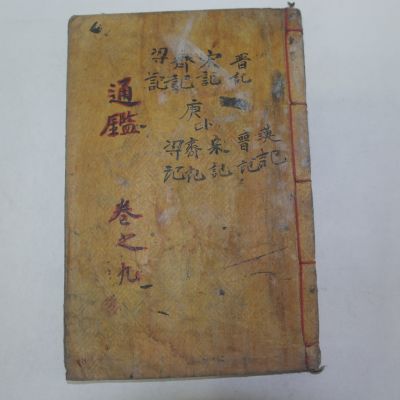 晋紀
宋記
齊記
梁記
庚
記
晋記
宋記
齊記
梁記
通鑑
卷之九